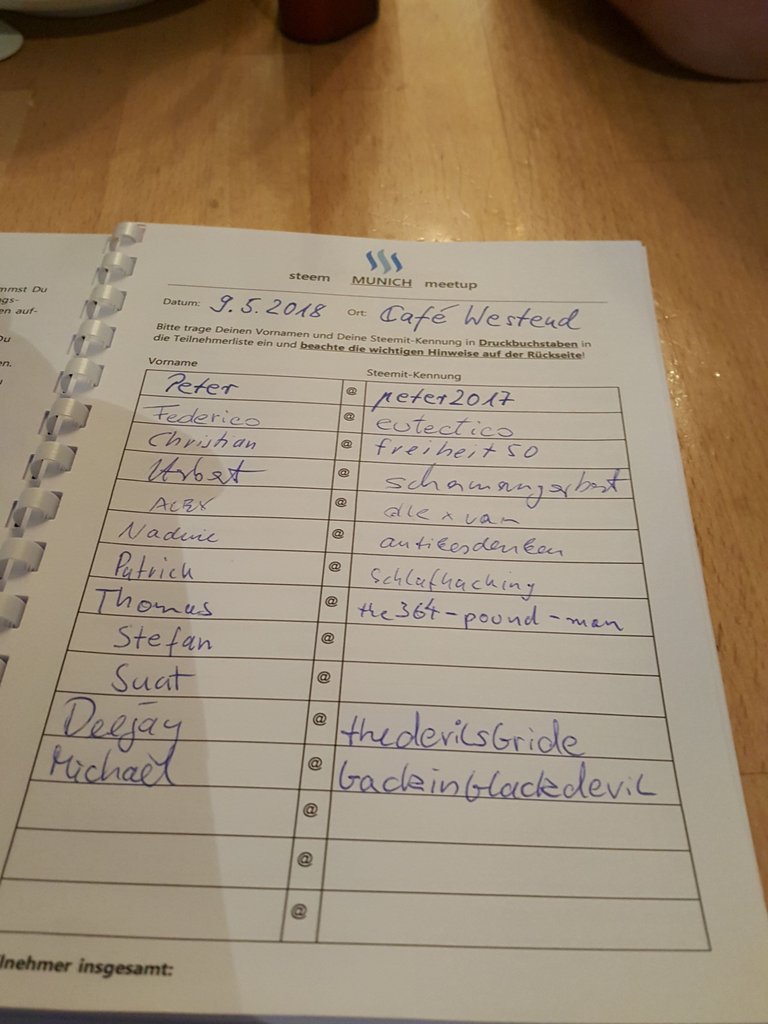 mmst Du
gs-
en auf-
Du
en.
steem MUNICH meetup
Datum: 9.5.2018 Ort: Café Westend
Bitte trage Deinen Vornamen und Deine Steemit-Kennung in Druckbuchstaben in
die Teilnehmerliste ein und beachte die wichtigen Hinweise auf der Rückseite!
Vorname Steemit-Kennung
Peter @ peter2017
Federico @ eutectico
Christian @ freiheit50
@
ALEX @ alexvan
Nadine @ antikesdenken
Patrick @ schlafhacking
Thomas @ the364-pound-man
Stefan @
Suat @
Deejay @ thedevilsbride
Michael @ backinblackdevil
@
@
@
ilnehmer insgesamt: